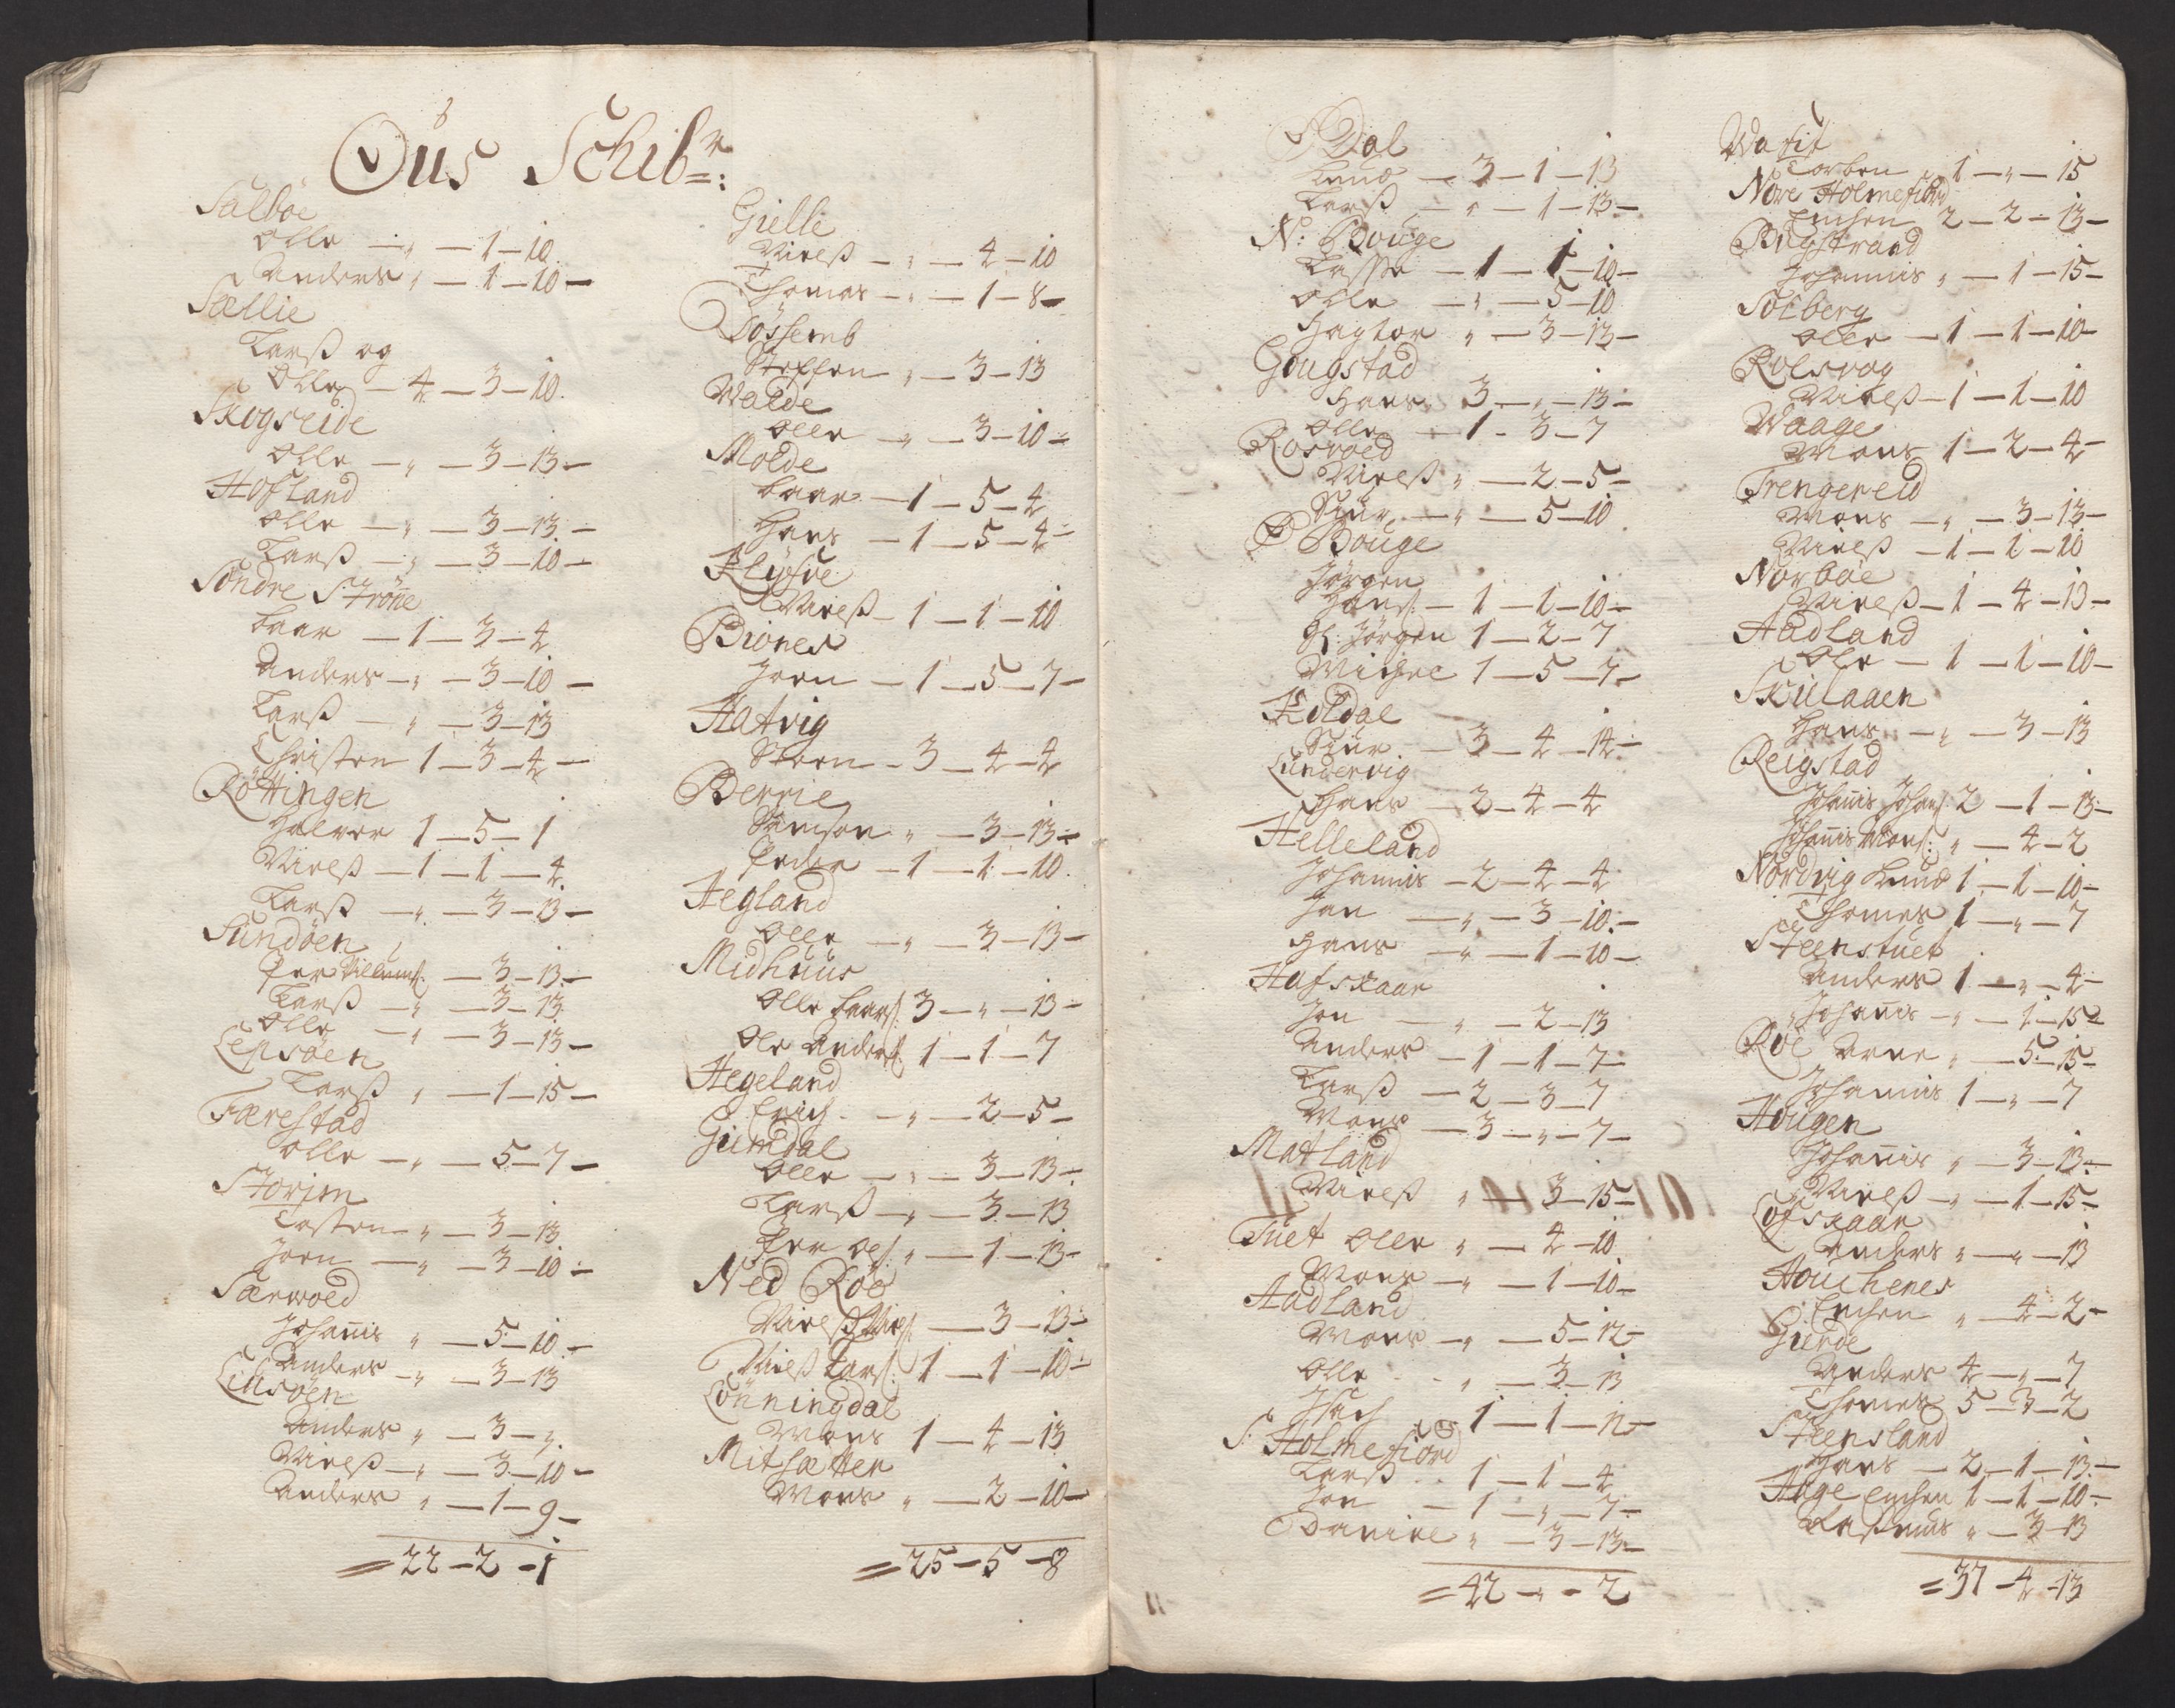 Ous Schibr:
Salböe
Olle — " — 1 — 10
Anders " — 1 — 10 —
Sællie
Larß og
Olle — 4 — 3 — 10.
Skogseide
Olle — " — 3 — 13 —
Hofland
Olle — " — 3 — 13 —
Larß — " — 3 — 10 —
Søndre Strøne
Baar — 1 — 3 — 4
Anders — " — 3 — 10 —
Larß — " — 3 — 13
Christen 1 — 3 — 4 —
Röttingen
Halvor 1 — 5 — 1
Nielß — 1 — 1 — 4
Larß — " — 3 — 13 —
Sundöen
Per Villumß: — 3 — 13 —
Larß — " — 3 — 13
Olle — " — 3 — 13 —
Lepsöen
Larß " — 1 — 15 —
Færestad
Olle — " — 5 — 7 —
Storim
Tosten — " — 3 — 13
Joen — " — 3 — 10 —
Særvold
Johanis " — 5 — 10 —
Anders — " — 3 — 13
Lilsöen
Anders " — 3 — 9
Nielß — " — 3 — 10 —
Anders " — 1 — 9 —
= 22 — 2 — 1
Gielle
Nielß — " — 4 — 10
Thomas — " — 1 — 8 —
Døssemb
Steffen " — 3 — 13
Walde
Olle — " — 3 — 10 —
Molde
Baar — 1 — 5 — 4
Hans — 1 — 5 — 4 —
Klyfve
Nielß — 1 — 1 — 10
Biönes
Joen — 1 — 5 — 7 —
Hatvig
Steen — 3 — 4 — 4
Berrie
Simson " — 3 — 13 —
Peder — 1 — 1 — 10.
Hegland
Olle — " — 3 — 13 —
Midhuus
Olle Baarß: 3 — " — 13 —
Ole Anderß: 1 — 1 — 7
Hegeland
Erich — " — 2 — 5 —
Giemdal
Olle — " — 3 — 13 —
Larß — " — 3 — 13
Per Olß: " — 1 — 13 —
Ned Röe
Nielß Nielß: — 3 — 13 —
Nielß Larß: 1 — 1 — 10 —
Lönningdal
Mons 1 — 4 — 13
Mitsætter
Mons " — 2 — 10 —
= 25 — 5 — 8
Dal
Knud — 3 — 1 — 13
Larß — " — 1 — 13 —
N: Bouge
Lasse — 1 — 1 — 10 —
Olle — " — 5 — 10
Hagtor " — 3 — 13 —
Gougstad
Hans 3 — " — 13 —
Olle — 1 — 3 — 7
Rosvold
Nielß " — 2 — 5 —
Siur — " — 5 — 10
Bouge
Jörgen
Hanß: — 1 — 1 — 10 —
Jörgen 1 — 2 — 7
Michel 1 — 5 — 7 —
Koldal
Siur — 3 — 4 — 14 —
Lundervig
Hans — 2 — 4 — 4
Helleland
Johannis — 2 — 4 — 4
Jan — " — 3 — 10 —
Hans — " — 1 — 10 —
Hafskaar
Jon — " — 2 — 13
Anders — 1 — 1 — 7 —
Larß — 2 — 3 — 7
Mons — 3 — " — 7 —
Matland
Nielß " — 3 — 15 —
Tuet Olle " — 4 — 10
Mons — " — 1 — 10 —
Hadland
Mons — " — 5 — 12 —
Olle — " — 3 — 13
Isach 1 — 1 — 12 —
S: Holmefiord
Larß — 1 — 1 — 4
Jon — 1 — " — 7 —
Daniel " — 3 — 13 —
= 42 — " — 2
Torben " 1 — " — 15
Nore Holmefiord
Enchen 2 — 2 — 13 —
Bugstrand
Johannis " — 1 — 15 —
Solberg
Olle — 1 — 1 — 10 —
Rolsvog
Nielß — 1 — 1 — 10
Waage
Mons 1 — 2 — 4 —
Trengereid
Mons — " — 3 — 13 —
Nielß — 1 — 1 — 10
Norböe
Nielß — 1 — 4 — 13 —
Hadland
Ole — 1 — 1 — 10 —
Skulagen
Hans — " — 3 — 13
Reigstad
Johanis Johanß: 2 — 1 — 13 —
Johanis Monß: " — 4 — 2
Nordvig Knud 1 — 1 — 10 —
Thomes 1 — " — 7
Steenstuet
Anders 1 — " — 4 —
Johanis — " — 1 — 15 —
Röe Arne " — 5 — 15 —
Johannis 1 — " — 7
Hougen
Johanis " — 3 — 13 —
Nielß — " — 1 — 15 —
Lofskaar
Anders " — " — 13
Houchenes
Enchen " — 4 — 2 —
Gierde
Anders 4 — " — 7
Thomes 5 — 3 — 2
Steensland
Hans — 2 — 1 — 13 —
Hage Enchen 1 — 1 — 10 —
Rasmus " — 3 — 13
= 37 — 4 — 13